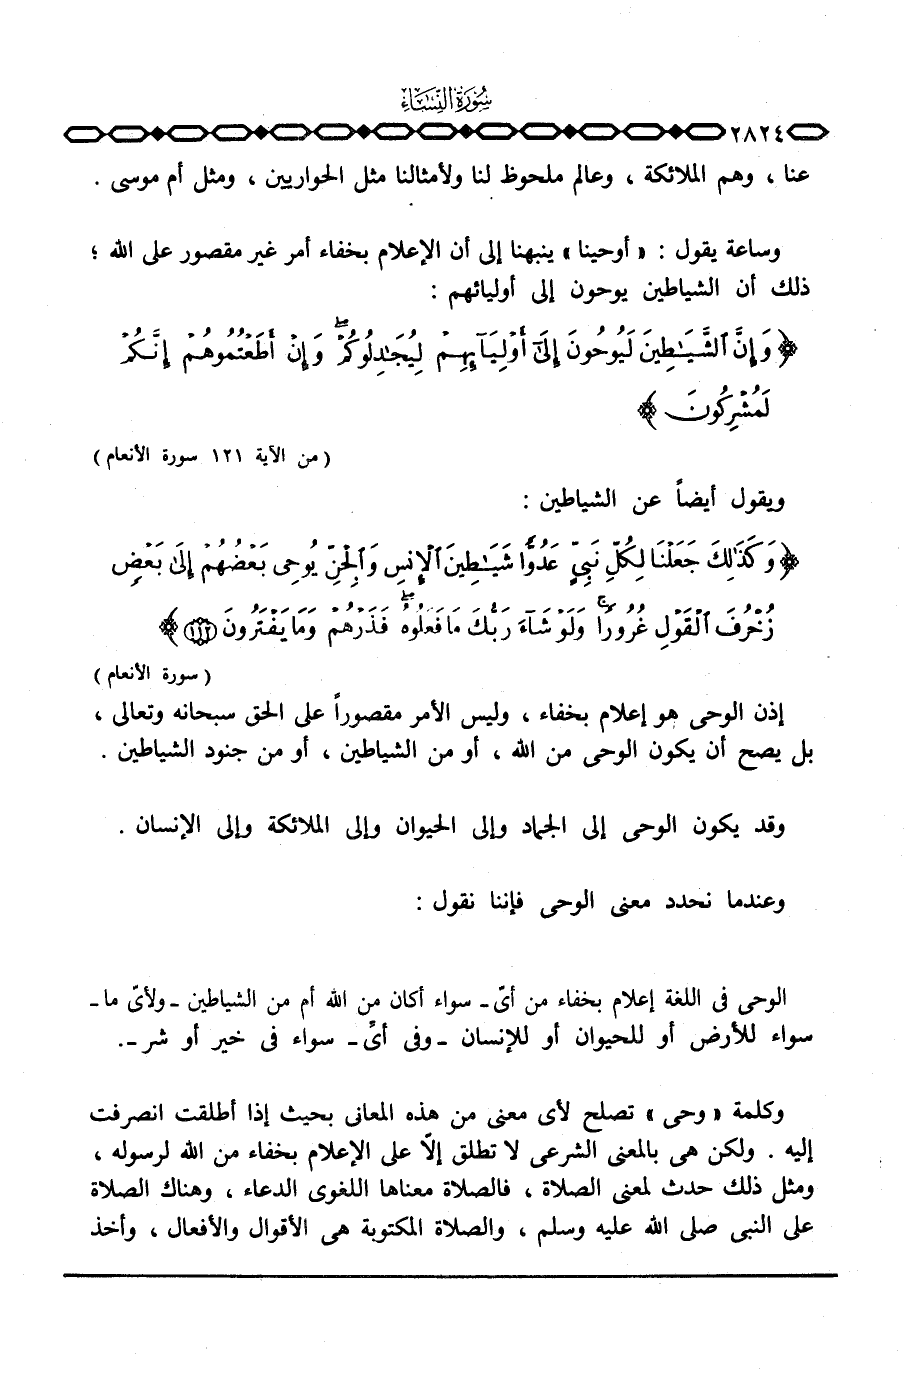 سورة النساء
٢٨٢٤
عنا ، وهم الملائكة ، وعالم ملحوظ لنا ولأمثالنا مثل الحواريين ، ومثل أم موسى .
وساعة يقول : « أوحينا » ينبهنا إلى أن الإعلام بخفاء أمر غير مقصور على الله ؛
ذلك أن الشياطين يوحون إلى أوليائهم :
﴿ وَإِنَّ ٱلشَّيَٰطِينَ لَيُوحُونَ إِلَىٰٓ أَوْلِيَآئِهِمْ لِيُجَٰدِلُوكُمْ ۖ وَإِنْ أَطَعْتُمُوهُمْ إِنَّكُمْ
لَمُشْرِكُونَ ﴾
( من الآية ١٢١ سورة الأنعام )
ويقول أيضاً عن الشياطين :
﴿ وَكَذَٰلِكَ جَعَلْنَا لِكُلِّ نَبِيٍّ عَدُوًّا شَيَٰطِينَ ٱلْإِنسِ وَٱلْجِنِّ يُوحِى بَعْضُهُمْ إِلَىٰ بَعْضٍ
زُخْرُفَ ٱلْقَوْلِ غُرُورًا ۚ وَلَوْ شَآءَ رَبُّكَ مَا فَعَلُوهُ ۖ فَذَرْهُمْ وَمَا يَفْتَرُونَ ١١٢ ﴾
( سورة الأنعام )
إذن الوحى هو إعلام بخفاء ، وليس الأمر مقصوراً على الحق سبحانه وتعالى ،
بل يصح أن يكون الوحى من الله ، أو من الشياطين ، أو من جنود الشياطين .
وقد يكون الوحى إلى الجماد وإلى الحيوان وإلى الملائكة وإلى الإنسان .
وعندما نحدد معنى الوحى فإننا نقول :
الوحى فى اللغة إعلام بخفاء من أىّ ـ سواء أكان من الله أم من الشياطين ـ ولأىّ ما ـ
سواء للأرض أو للحيوان أو للإنسان ـ وفى أىِّ ـ سواء فى خير أو شر ـ .
وكلمة « وحى » تصلح لأى معنى من هذه المعانى بحيث إذا أطلقت انصرفت
إليه . ولكن هى بالمعنى الشرعى لا تطلق إلّا على الإعلام بخفاء من الله لرسوله ،
ومثل ذلك حدث لمعنى الصلاة ، فالصلاة معناها اللغوى الدعاء ، وهناك الصلاة
على النبى صلى الله عليه وسلم ، والصلاة المكتوبة هى الأقوال والأفعال ، وأخذ